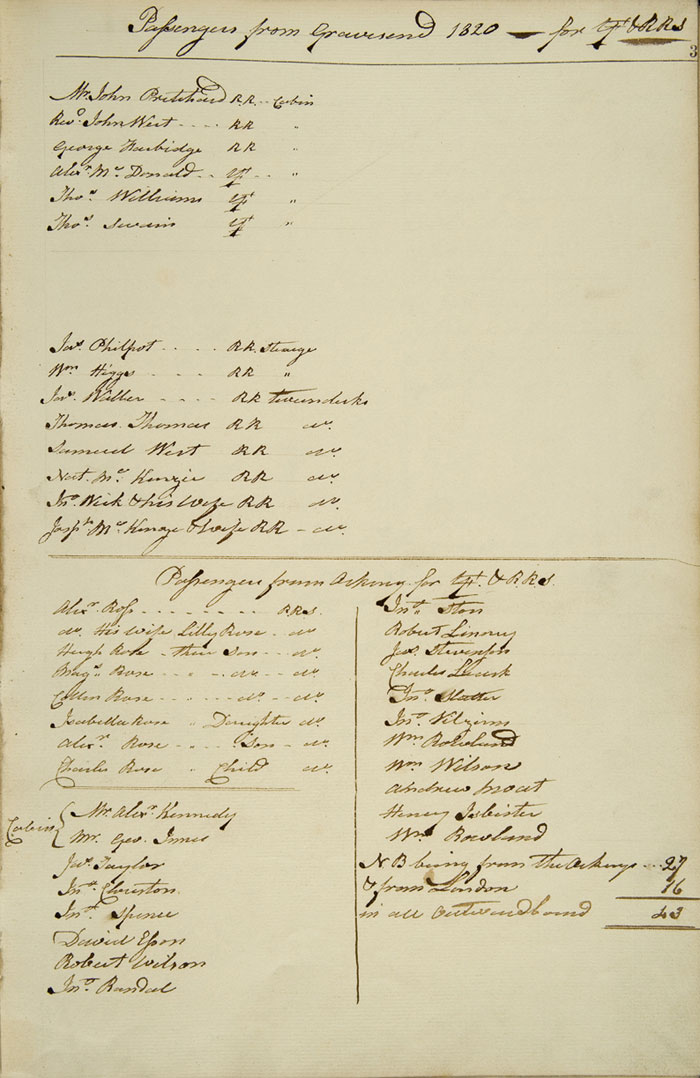 Passengers from Gravesend 1820 — for YF & RRS
3
Mr. John Pritchard RR -- Cabin
Revd. John West - - - - RR "
George Harbidge RR "
Alexr. Mc Donald - - YF - - "
Thos. Williams YF "
Thos. Swain YF "
Jas. Philpot - - - - RR. Steerage
Wm Higgs - - - - RR "
Jas. Waller - - - RR Tweendecks
Thomas Thomas RR do.
Samuel West RR do.
Nat. Mc Kenzie RR do.
Jno. Wick & his Wife RR do.
Josph. Mc Kenzie & Wife RR - do.
Passengers from Orkney for YF. & RRS.
Alexr. Ross - - - - - - - RRS.
do. His Wife Lilly Rose - do.
Hugh Rose - their Son - - do.
Magn. Rose " - do. - - do.
Rose " - do. - - do.
Isabella Rose " Daughter do.
Alexr. Rose - - - - Son - do.
Charles Rose " Child do.
Cabin { Mr. Alexr. Kennedy
Mr. Geo. Innes
Jas. Taylor
Jno. Cheuston
Jno. Spence
David Esson
Robert Wilson
Jno. Randal
Jno.
Robert Linney
Jas. Stevenson
Charles Leask
Jno. Slatter
Jno.
Wm Rowland
Wm Wilson
Andrew Moat
Henry Isbister
Wm. Rowland
NB being from the Orkneys - - 27
& from London 16
in all Outward bound 43